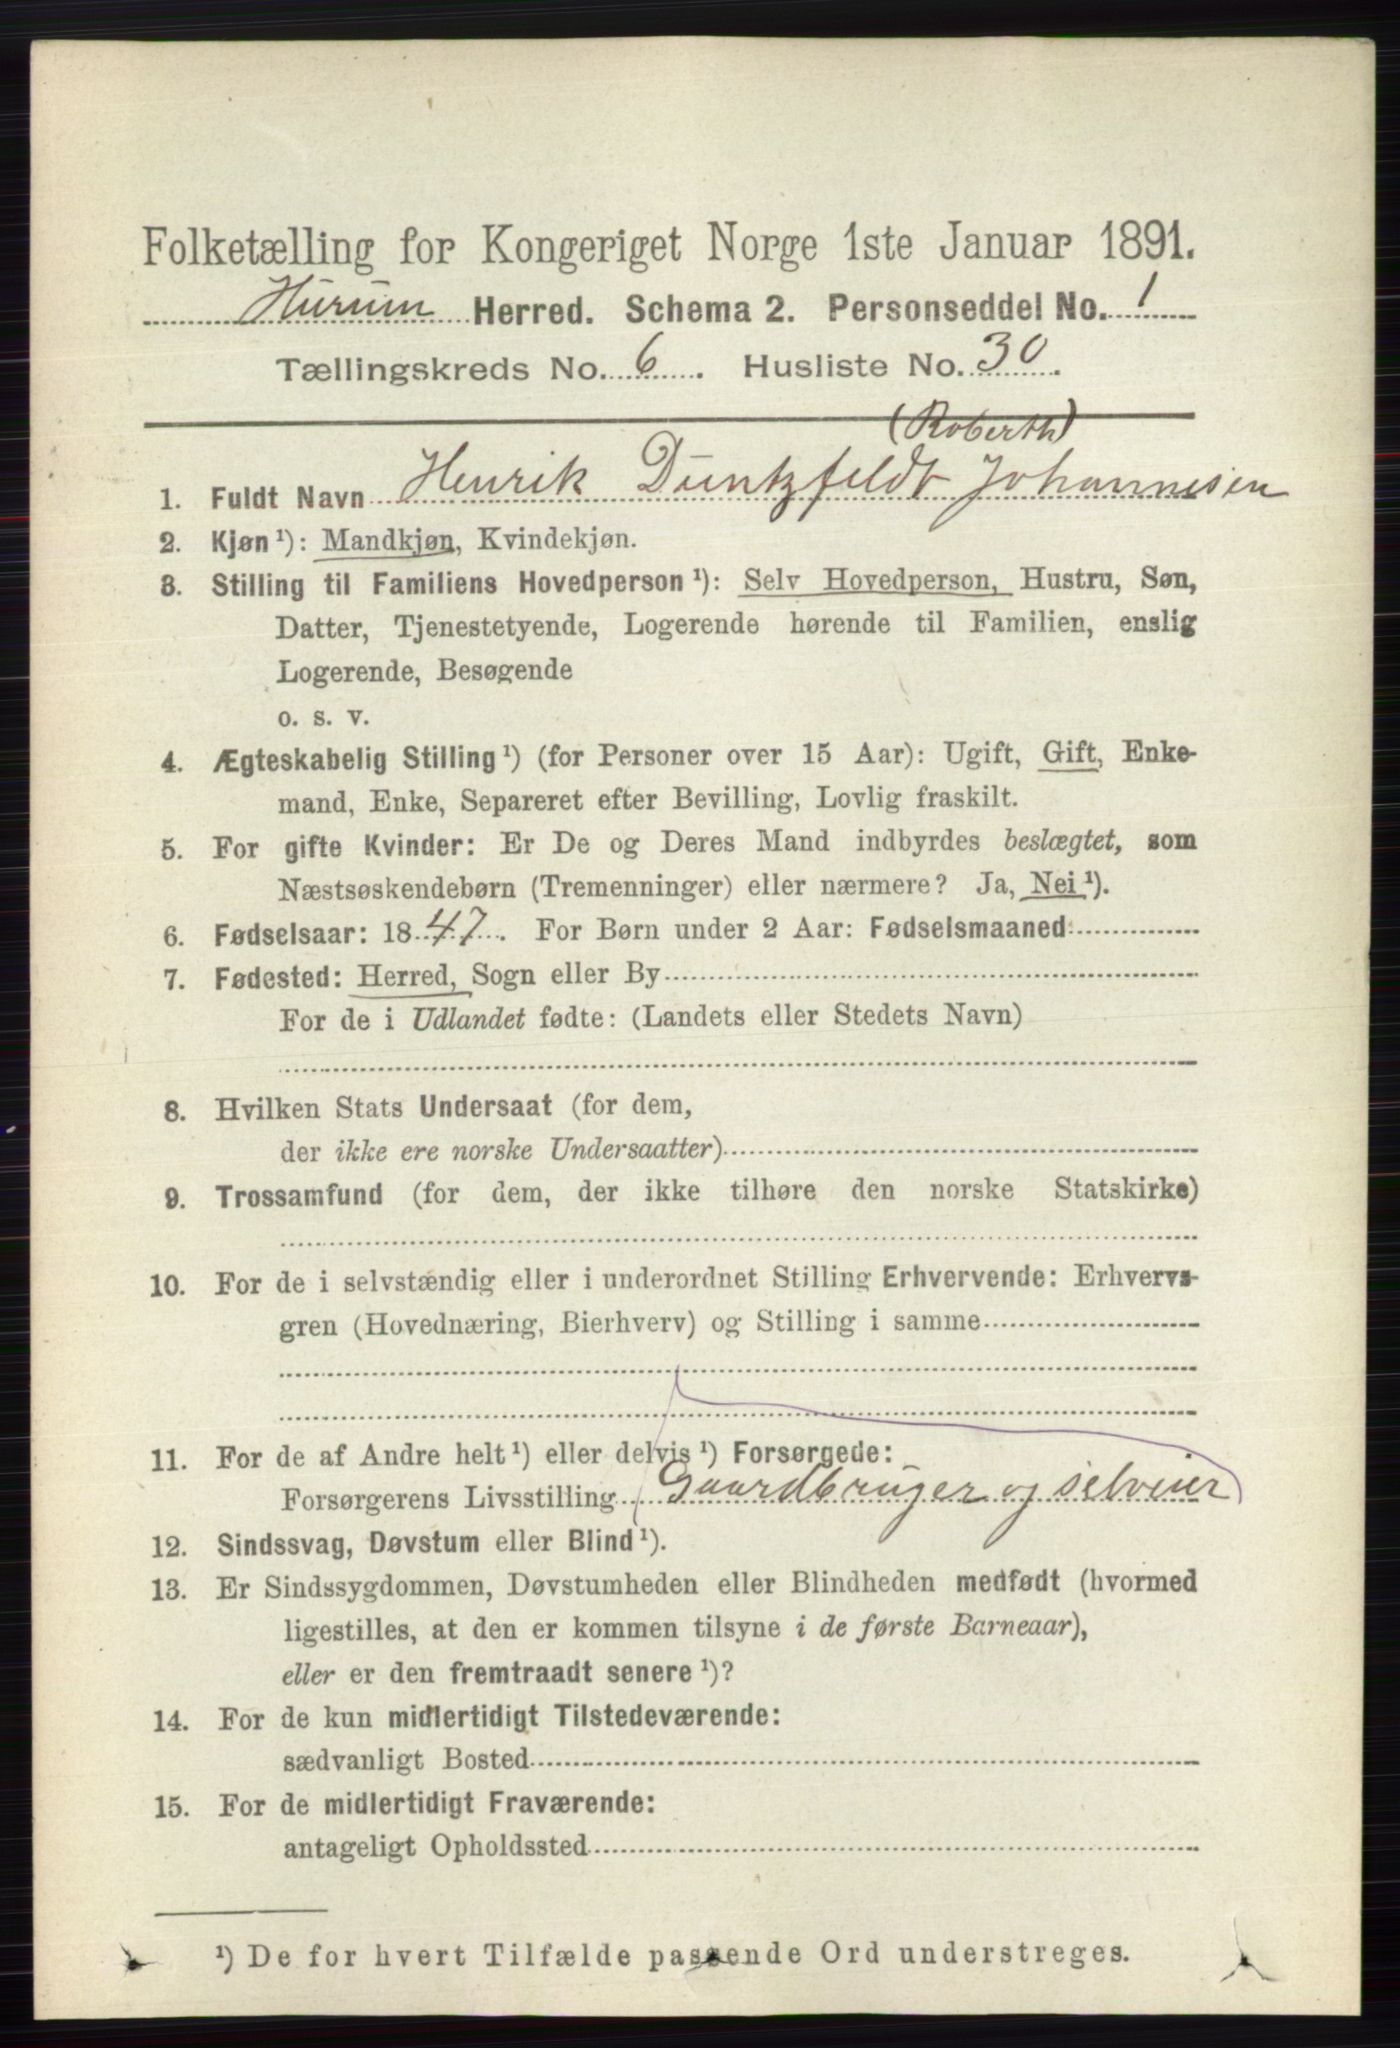 Folketælling for Kongeriget Norge 1ste Januar 1891.
Hurum Herred. Schema 2. Personseddel No. 1
Tællingskreds No. 6. Husliste No. 30.
(Roberth)
1. Fuldt Navn Henrik Duntzfeldt Johannesen
2. Kjøn ¹): Mandkjøn, Kvindekjøn.
3. Stilling til Familiens Hovedperson ¹): Selv Hovedperson, Hustru, Søn,
Datter, Tjenestetyende, Logerende hørende til Familien, enslig
Logerende, Besøgende
o. s. v.
4. Ægteskabelig Stilling ¹) (for Personer over 15 Aar): Ugift, Gift, Enke-
mand, Enke, Separeret efter Bevilling, Lovlig fraskilt.
5. For gifte Kvinder: Er De og Deres Mand indbyrdes beslægtet, som
Næstsøskendebørn (Tremenninger) eller nærmere? Ja, Nei ¹).
6. Fødselsaar: 1847. For Børn under 2 Aar: Fødselsmaaned
7. Fødested: Herred, Sogn eller By
For de i Udlandet fødte: (Landets eller Stedets Navn)
8. Hvilken Stats Undersaat (for dem,
der ikke ere norske Undersaatter)
9. Trossamfund (for dem, der ikke tilhøre den norske Statskirke)
10. For de i selvstændig eller i underordnet Stilling Erhvervende: Erhvervs-
gren (Hovednæring, Bierhverv) og Stilling i samme
11. For de af Andre helt ¹) eller delvis ¹) Forsørgede:
Forsørgerens Livsstilling Gaardbruger og selveier
12. Sindssvag, Døvstum eller Blind ¹).
13. Er Sindssygdommen, Døvstumheden eller Blindheden medfødt (hvormed
ligestilles, at den er kommen tilsyne i de første Barneaar),
eller er den fremtraadt senere ¹)?
14. For de kun midlertidigt Tilstedeværende:
sædvanligt Bosted
15. For de midlertidigt Fraværende:
antageligt Opholdssted
¹) De for hvert Tilfælde passende Ord understreges.